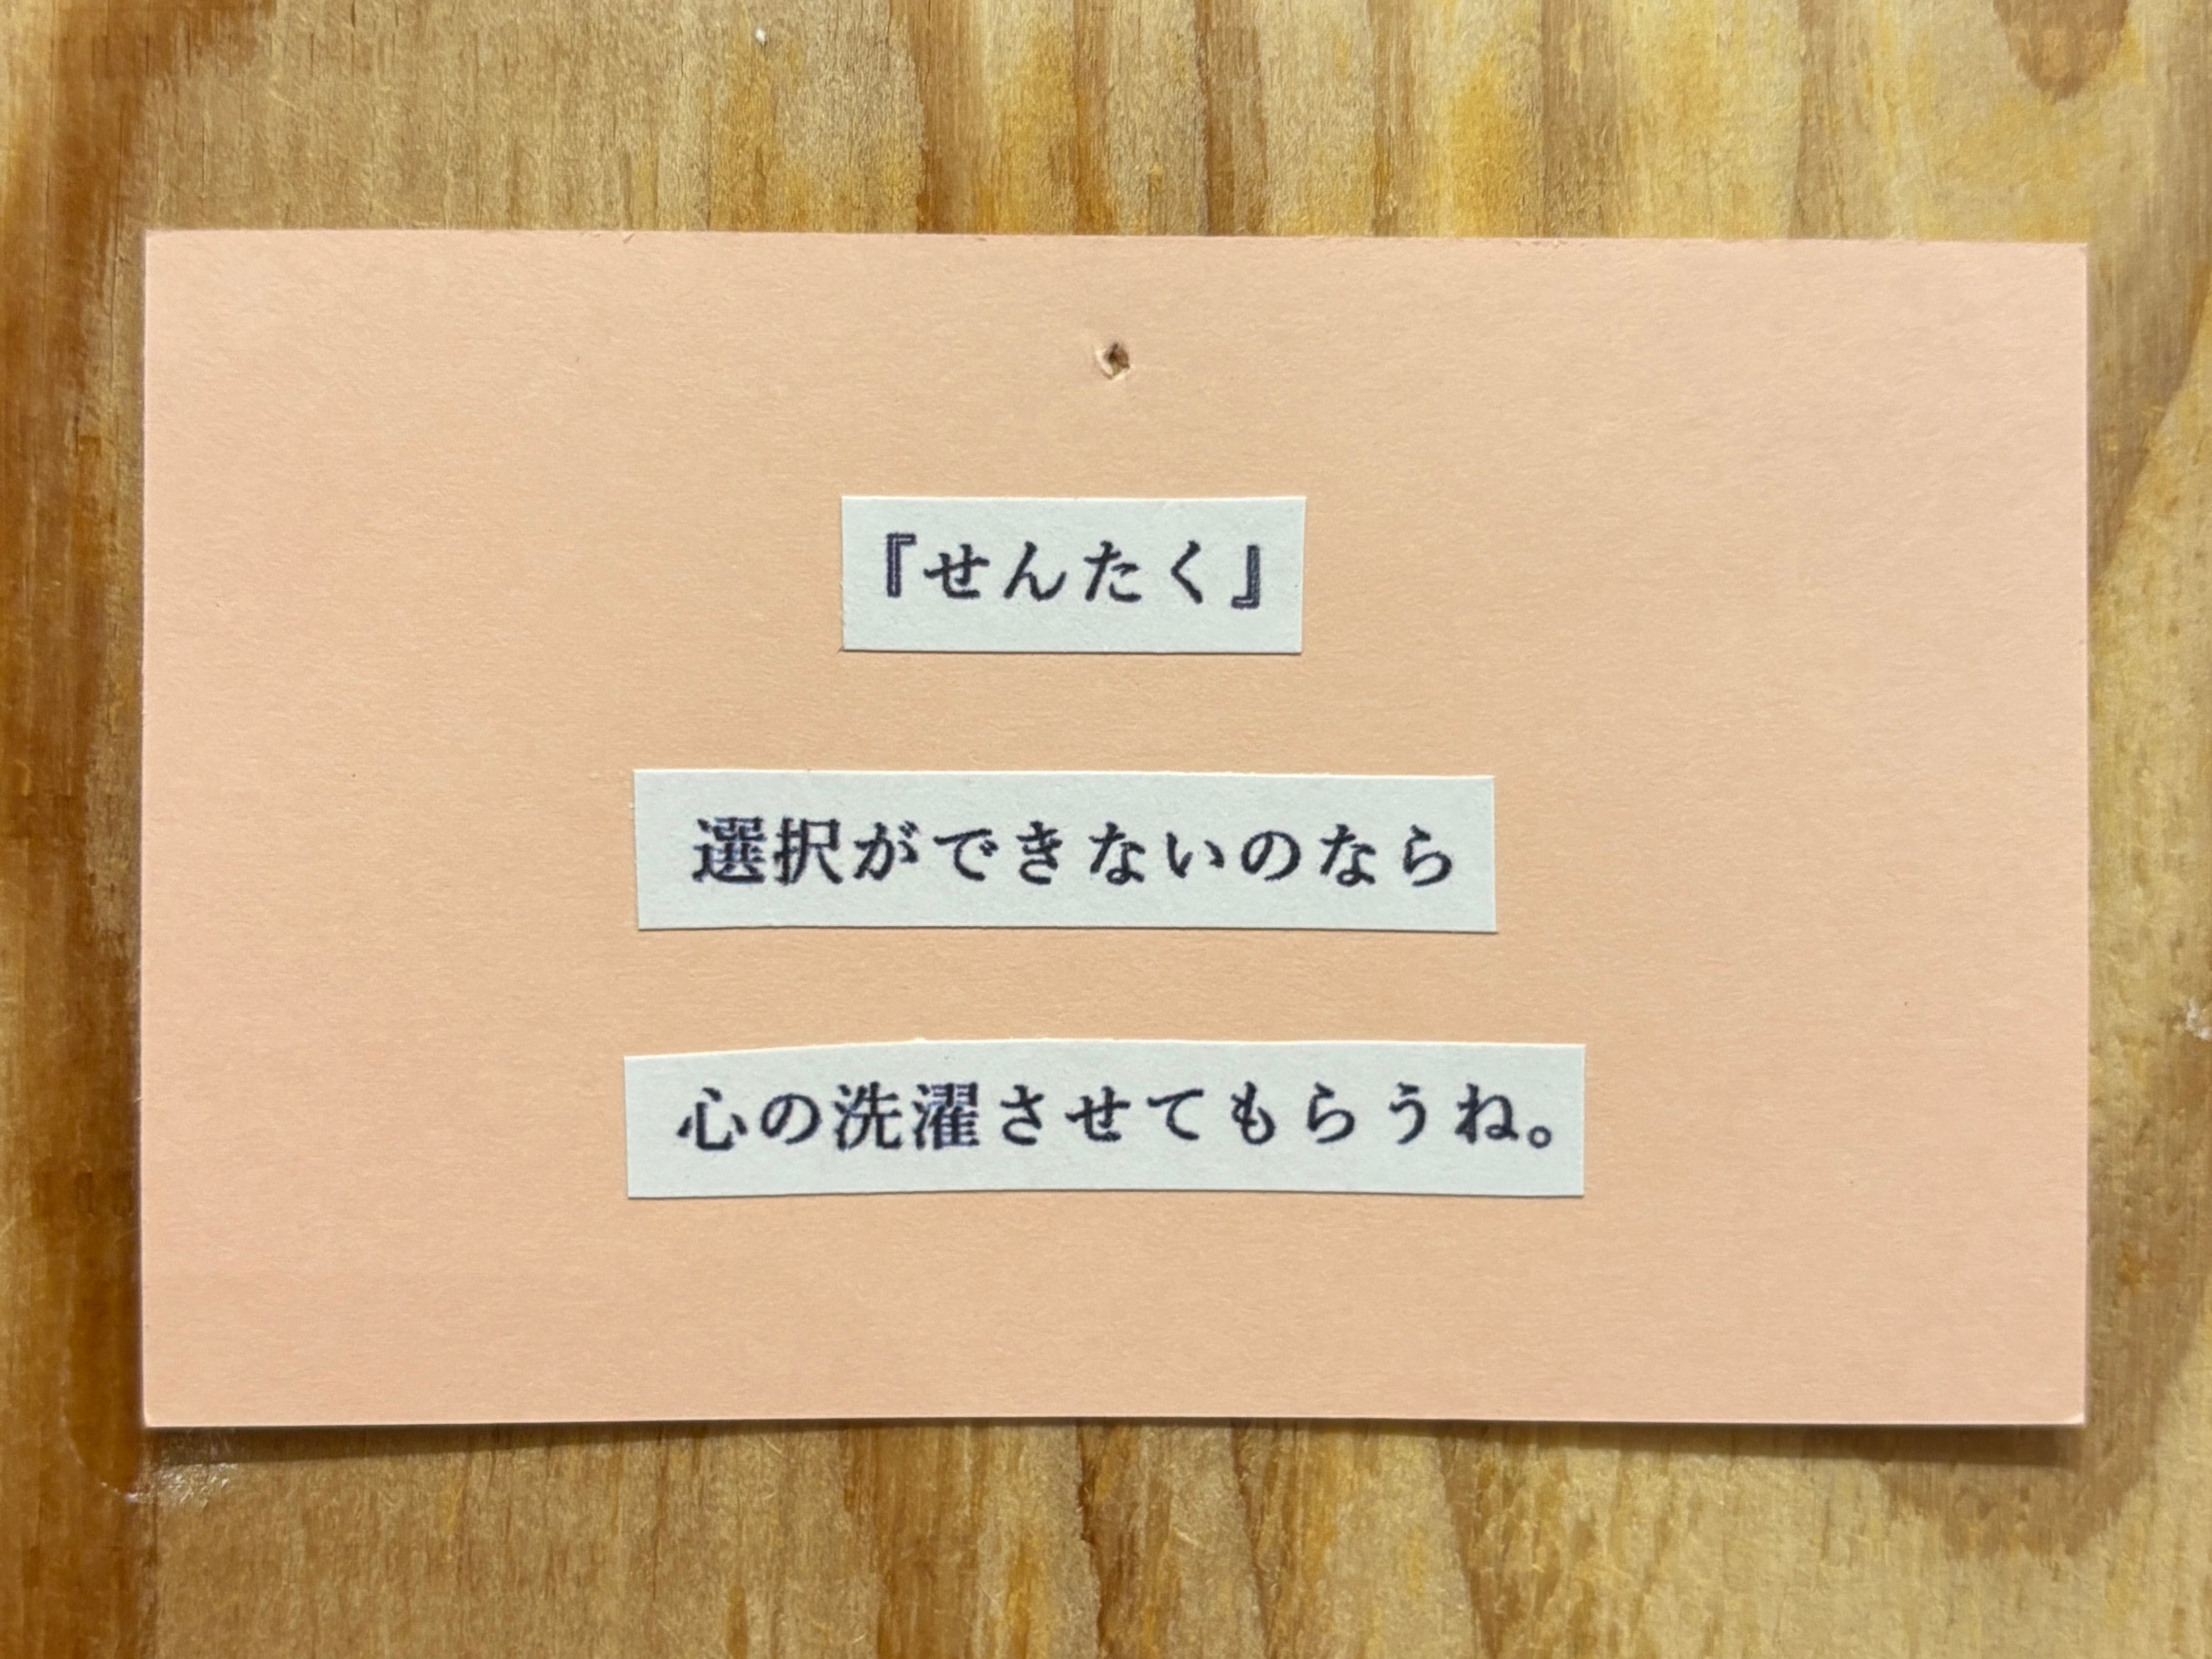 『せんたく』
選択ができないのなら
心の洗濯させてもらうね。